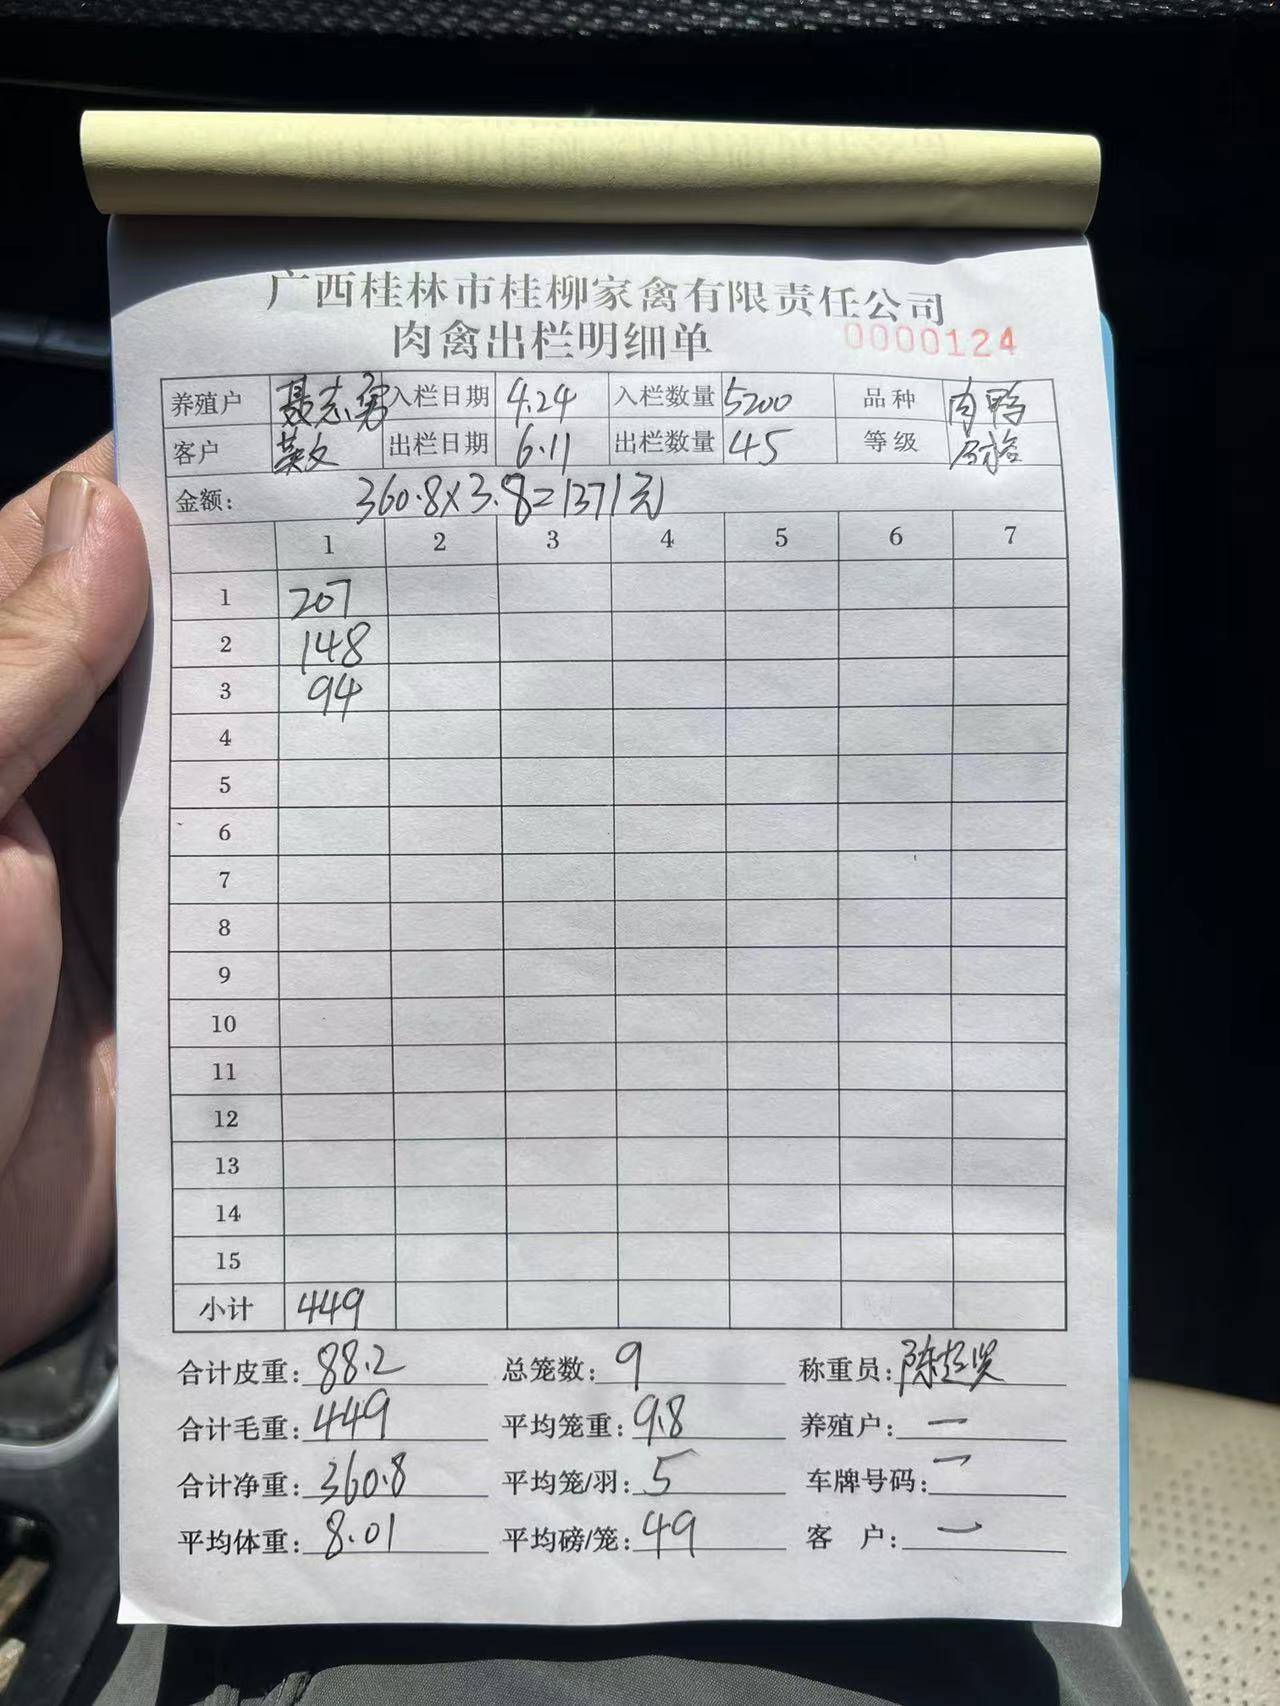 广西桂林市桂柳家禽有限责任公司
肉禽出栏明细单 0000124
养殖户 聂志勇 入栏日期 4.24 入栏数量 5200 品种 肉鸭
客户 英文 出栏日期 6.11 出栏数量 45 等级
金额: 360.8×3.8=1371元
1 2 3 4 5 6 7
1 207
2 148
3 94
4
5
6
7
8
9
10
11
12
13
14
15
小计 449
合计皮重: 88.2 总笼数: 9 称重员: 陈超贤
合计毛重: 449 平均笼重: 9.8 养殖户: 一
合计净重: 360.8 平均笼/羽: 5 车牌号码: 一
平均体重: 8.01 平均磅/笼: 49 客 户: 一